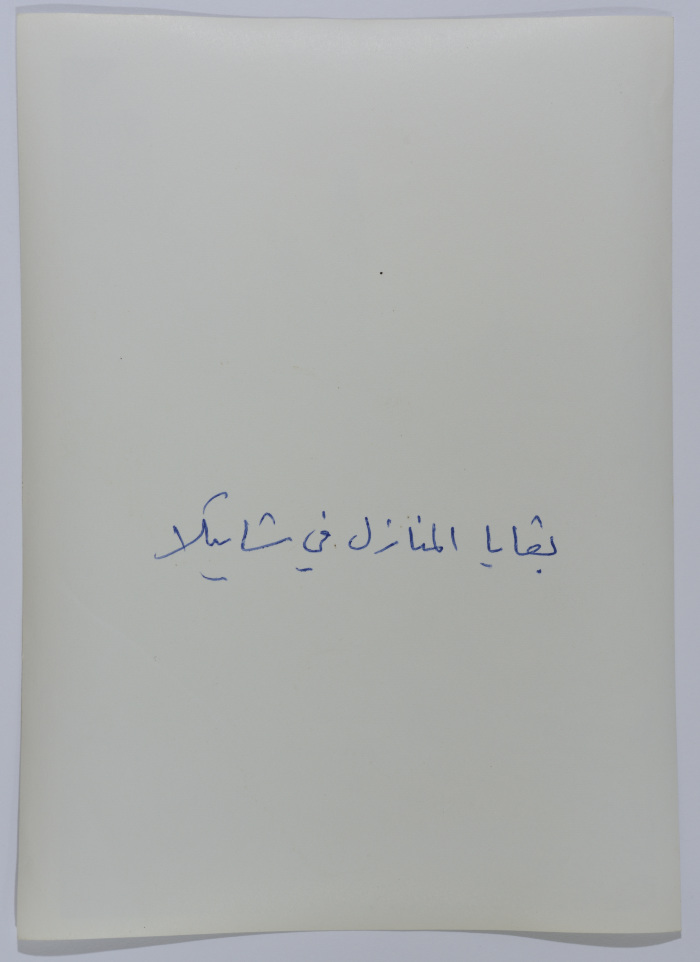 بقايا المنازل في شاتيلا